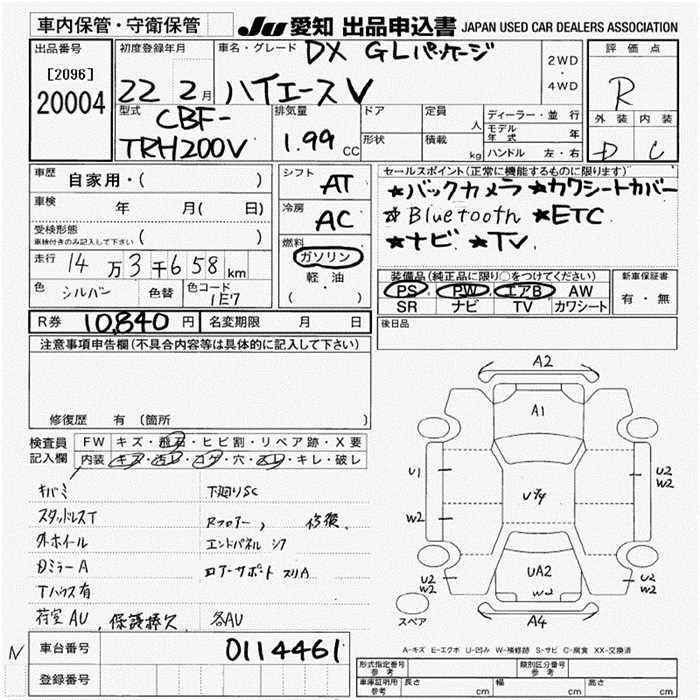 車内保管・守衛保管
JU 愛知 出品申込書 JAPAN USED CAR DEALERS ASSOCIATION
出品番号
[2096]
20004
初度登録年月
22 2月
車名・グレード DX GLパッケージ
ハイエースV
2WD
・
4WD
評価点
R
外装 内装
D C
型式 CBF-
TRH200V
排気量
1.99 CC
ドア
形状
定員
人
積載
kg
ディーラー・並行
モデル年式 年
ハンドル 左・右
車歴 自家用・( )
車検 年 月( 日)
受検形態
車検付きのみ記入して下さい ( )
走行 14万3千658km
色 シルバー 色替 色コード 1E7
シフト AT
冷房 AC
燃料
ガソリン
・
軽・油
( )
セールスポイント(正常に機能するものに限ります)
★バックカメラ ★カワシートカバー
★Bluetooth ★ETC
★ナビ ★TV
装備品(純正品に限り○をつけてください)
PS PW エアB AW
SR ナビ TV カワシート
新車保証書
有・無
R券 10,840円 名変期限 月 日
後日品
注意事項申告欄(不具合内容等は具体的に記入して下さい)
修復歴 有(箇所 )
検査員 FW キズ・飛石・ヒビ割・リペア跡・X要
記入欄 内装 キズ・汚レ・コゲ・穴・スレ・キレ・破レ
キバミ 下廻りSC
スタッドレスT Rフロアー, 修復
外ホイール エンドパネル
DミラーA ロアーサポート
Tハウス有
荷室AU, 各AU
A2
A1
U1
W2
U2
W2
UA2
W2
U2
W2
U2
W2
A4
スペア
A-キズ E-エクボ U-凹み W-補修跡 S-サビ C-腐食 XX-交換済
N 車台番号 0114461
登録番号
形式指定番号 参考 類別区分番号 参考
車庫証明用 参考 長さ cm 幅 cm 高さ cm